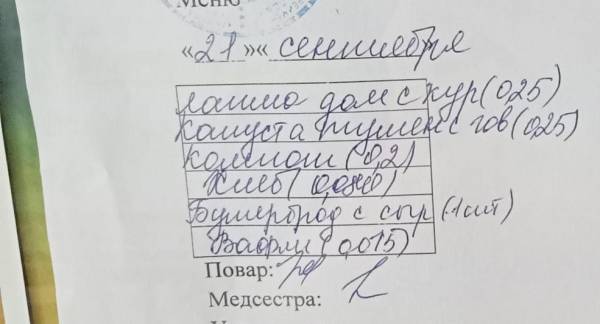 Меню
«21»« сентября
лапша дом с кур (0,25)
капуста тушен с гов (0,25)
компот (0,2)
Хлеб (0,040)
Бутерброд с сыр (1шт)
Вафли (0,015)
Повар:
Медсестра: